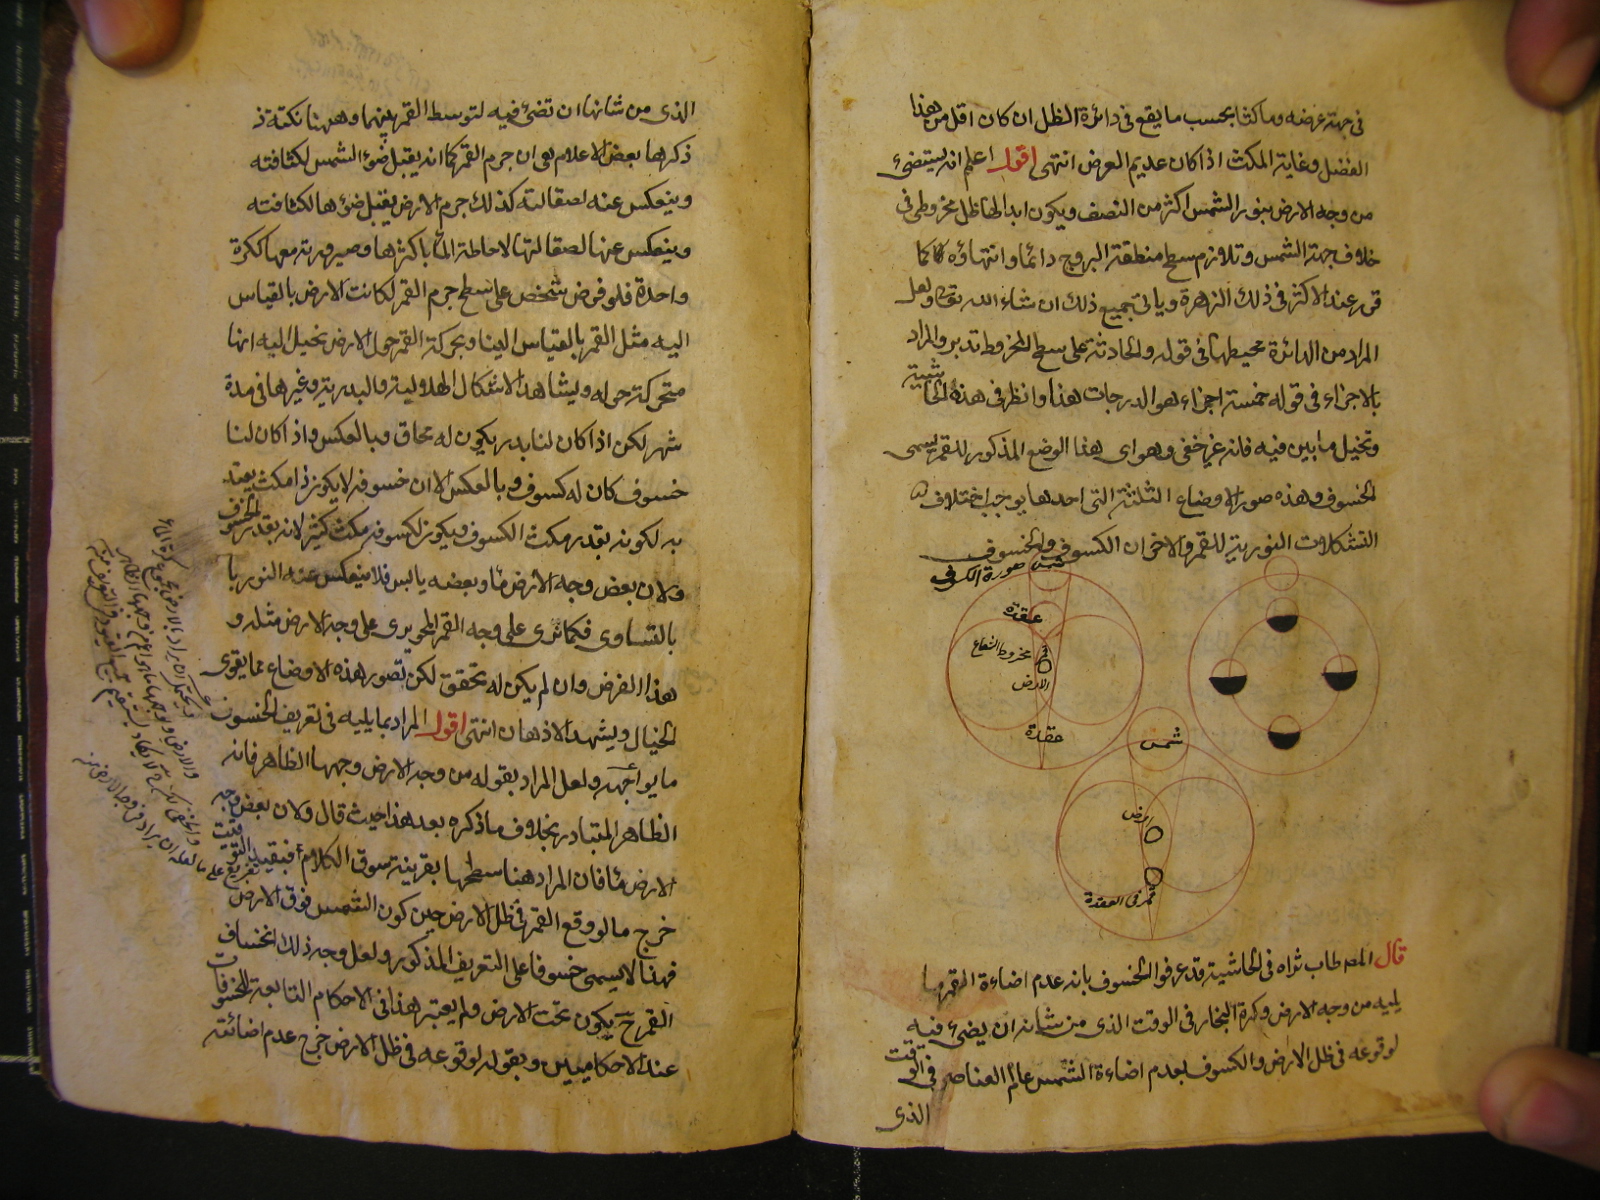 فى جهة عرضه وماكثا بحسب ما يقع فى دائرة الظل ان كان اقل من هذا
الفضل وغاية المكث اذا كان عديم العرض انتهى اقول اعلم انه يستضئ
من وجه الارض بنور الشمس اكثر من النصف ويكون ابدا لها ظل مخروطى فى
خلاف جهة الشمس وتلازم سطح منطقة البروج دائما وانتهاؤه كما
قرر عند الاكثر فى ذلك الزهرة وياتى جميع ذلك ان شاء الله تعالى ولعل
المراد من الدائرة محيطها فى قوله والحادثة على سطح المخروط تدبر والمراد
بالاجزاء فى قوله خمسة اجزاء هو الدرجات هذا وانظر فى هذه الحاشية
وتخيل ما بين فيه فانه غير خفى وهو اى هذا الوضع المذكور للقمر يسمى
الخسوف وهذه صور الاوضاع الثلثة التى احدها يوجب اختلاف
التشكلات النورية للقمر والاخران الكسوف والخسوف
شمس صورة الكسوف
عقدة
قمر
مخروط الشعاع
الارض
عقدة
شمس
ارض
قمر فى العقدة
قال المص طاب ثراه فى الحاشية قد عرفوا الخسوف بانه عدم اضاءة القمر ما
يليه من وجه الارض وكرة البخار فى الوقت الذى من شانه ان يضئ فيه
لوقوعه فى ظل الارض والكسوف بعدم اضاءة الشمس عالم العناصر فى الوقت
الذى
الذى من شانها ان تضئ فيه لتوسط القمر بينهما وههنا نكتة
ذكرها بعض الاعلام هى ان جرم القمر كما انه يقبل ضوء الشمس لكثافته
وينعكس عنه لصقالته كذلك جرم الارض يقبل ضوءها لكثافته
وينعكس عنها لصقالتها لاحاطة الماء باكثرها وصيرورته معها ككرة
واحدة فلو فرض شخص على سطح جرم القمر لكانت الارض بالقياس
اليه مثل القمر بالقياس الينا وبحركة القمر حول الارض يخيل اليه انها
متحركة حوله ويشاهد الاشكال الهلالية والبدرية وغيرها فى مدة
شهر لكن اذا كان لنا بدر يكون له محاق وبالعكس واذا كان لنا
خسوف كان له كسوف وبالعكس الا ان خسوفه لا يكون ذا مكث يعتد
به لكونه بقدر مكث الكسوف ويكون لكسوفه مكث كثير لانه بقدر الخسوف
ولان بعض وجه الارض ماء وبعضه يابس فلا ينعكس عنه النور
بالتساوى فكما نرى على وجه القمر المحو يرى على وجه الارض مثله و
هذا الفرض وان لم يكن له تحقق لكن تصور هذه الاوضاع مما يقوى
الخيال ويشهد الاذهان انتهى اقول المراد بما يليه فى تعريف الخسوف
ما يواجهه ولعل المراد بقوله من وجه الارض وجهها الظاهر فانه
الظاهر المتبادر بخلاف ما ذكره بعد هذا حيث قال ولان بعض وجه
الارض ماء فان المراد هنا سطحها بقرينة سوق الكلام فبقيد الوقت
خرج ما لو وقع القمر فى ظل الارض حين كون الشمس فوق الارض
فهذا لا يسمى خسوفا على التعريف المذكور ولعل وجه ذلك انخساف
القمر ح يكون تحت الارض ولم يعتبر هذا فى الاحكام التابعة للخسوفات
عند الاحكاميين وبقوله لوقوعه فى ظل الارض خرج عدم اضائته